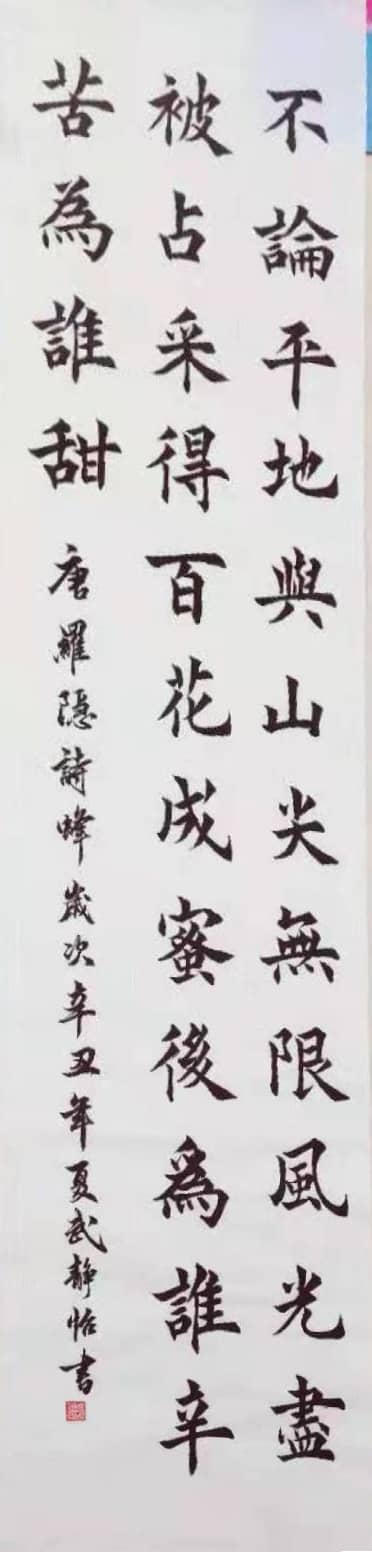 不論平地與山尖無限風光盡
被占采得百花成蜜後為誰辛
苦為誰甜
唐羅隱詩蜂歲次辛丑年夏武靜怡书